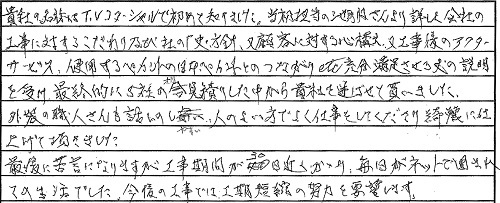 貴社の名称はT.Vコマーシャルで初めて知りました。当初担当の池田さんより詳しく会社の
工事に対するこだわり及び社の歴史、方針、又顧客に対する心構え、又工事後のアフター
サービス、使用するペイントのは日本ペイントとのつながり etc 充分満足させる丈の説明
を受け、最終的に5社の見積りした中から貴社を選ばせて貰いました。
外装の職人さんも話のし易い、人のよい方でよく仕事をしてくださり綺麗に仕
上げて頂きました。
最後に苦言になりますが工事期間が30日近くかかり、毎日がネットで囲まれ
ての生活でした。今後の工事では工期短縮の努力を要望します。